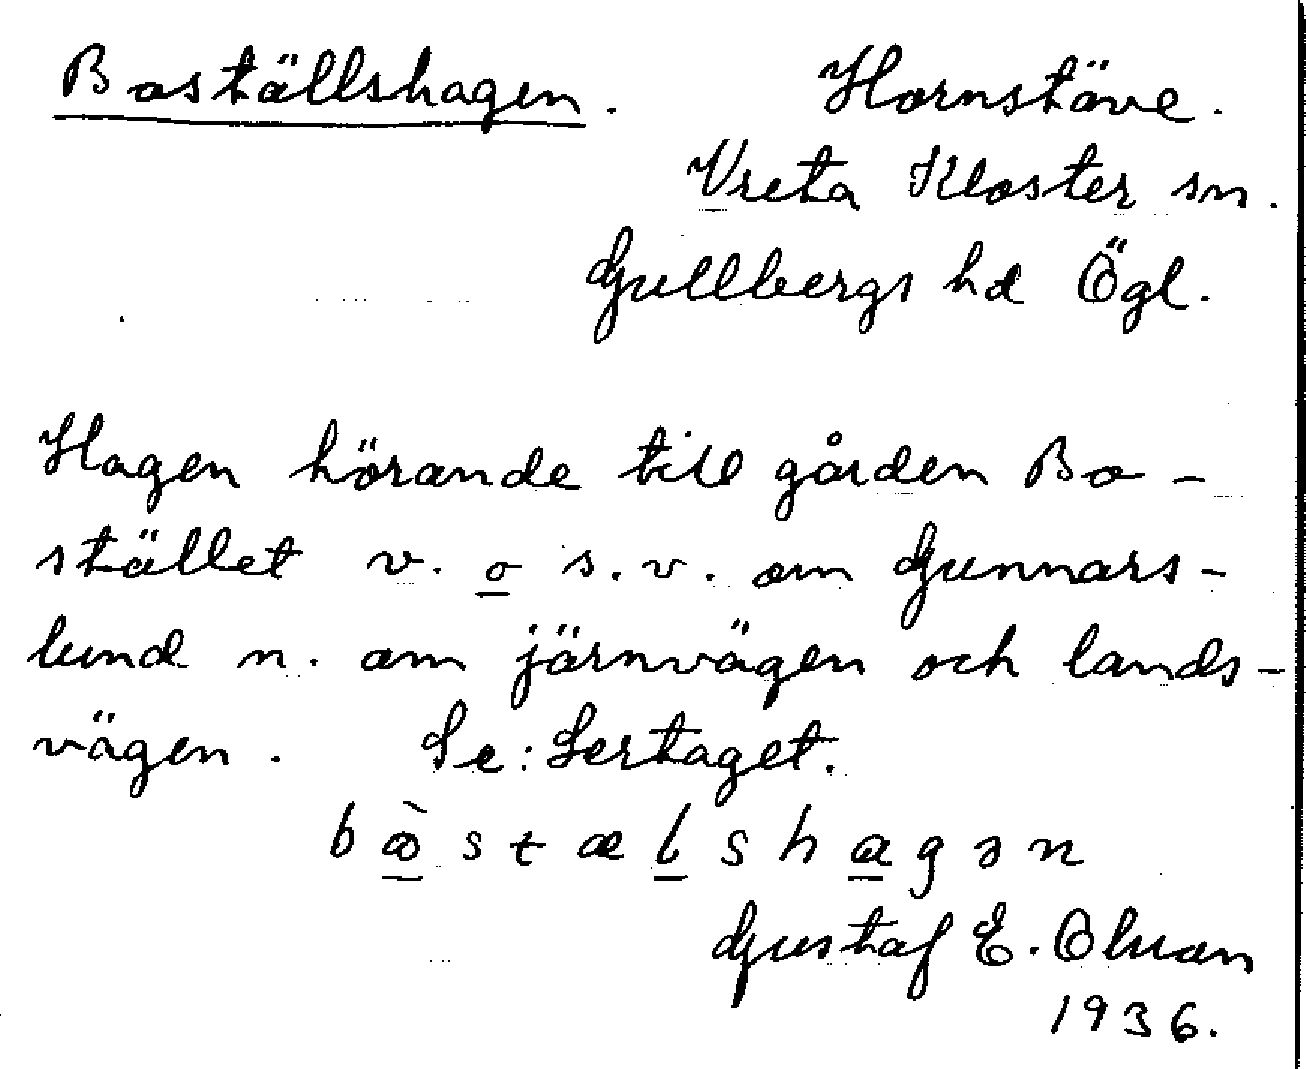 Boställshagen. Hornstäve.
Vreta Kloster sn.
Gullbergs hd Ögl.
Hagen hörande till gården Bo-
stället v. o s.v. om Gunnars-
lund n. om järnvägen och lands-
vägen. Se: Sertaget.
Gustaf E. Olson
1936.